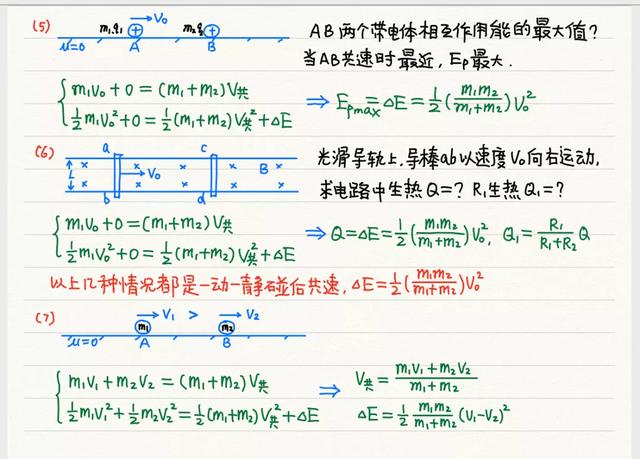 (5) m₁,q₁ → V₀ m₂,q₂ AB两个带电体相互作用能的最大值?
μ=0 A B 当AB共速时最近, Ep最大.
m₁V₀+0=(m₁+m₂)V共
½m₁V₀²+0=½(m₁+m₂)V共²+ΔE ⇒ Epmax=ΔE=½(m₁m₂/(m₁+m₂))V₀²
(6) a c 光滑导轨上,导棒ab以速度V₀向右运动,
L → V₀ B
b d 求电路中生热Q=? R₁生热Q₁=?
m₁V₀+0=(m₁+m₂)V共
½m₁V₀²+0=½(m₁+m₂)V共²+ΔE ⇒ Q=ΔE=½(m₁m₂/(m₁+m₂))V₀², Q₁=R₁/(R₁+R₂) Q
以上几种情况都是一动一静碰后共速,ΔE=½(m₁m₂/(m₁+m₂))V₀²
(7) → V₁ > → V₂
m₁ m₂
μ=0 A B
m₁V₁+m₂V₂=(m₁+m₂)V共 ⇒ V共=(m₁V₁+m₂V₂)/(m₁+m₂)
½m₁V₁²+½m₂V₂²=½(m₁+m₂)V共²+ΔE ΔE=½ m₁m₂/(m₁+m₂) (V₁-V₂)²